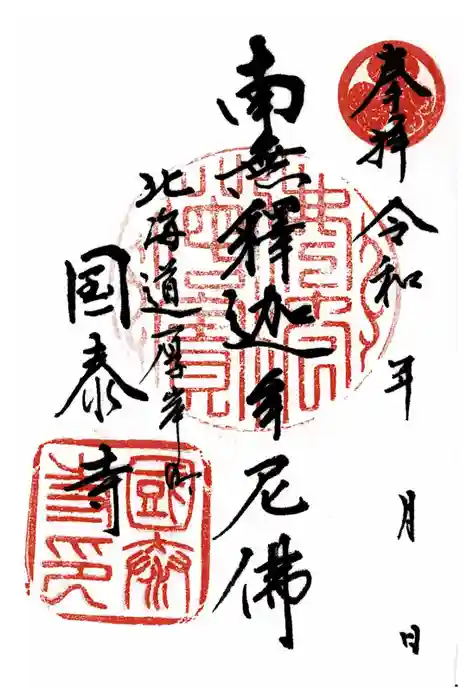 奉拝 令和 年 月 日
南無釋迦牟尼佛
北海道厚岸町
国泰寺
國泰
寺印